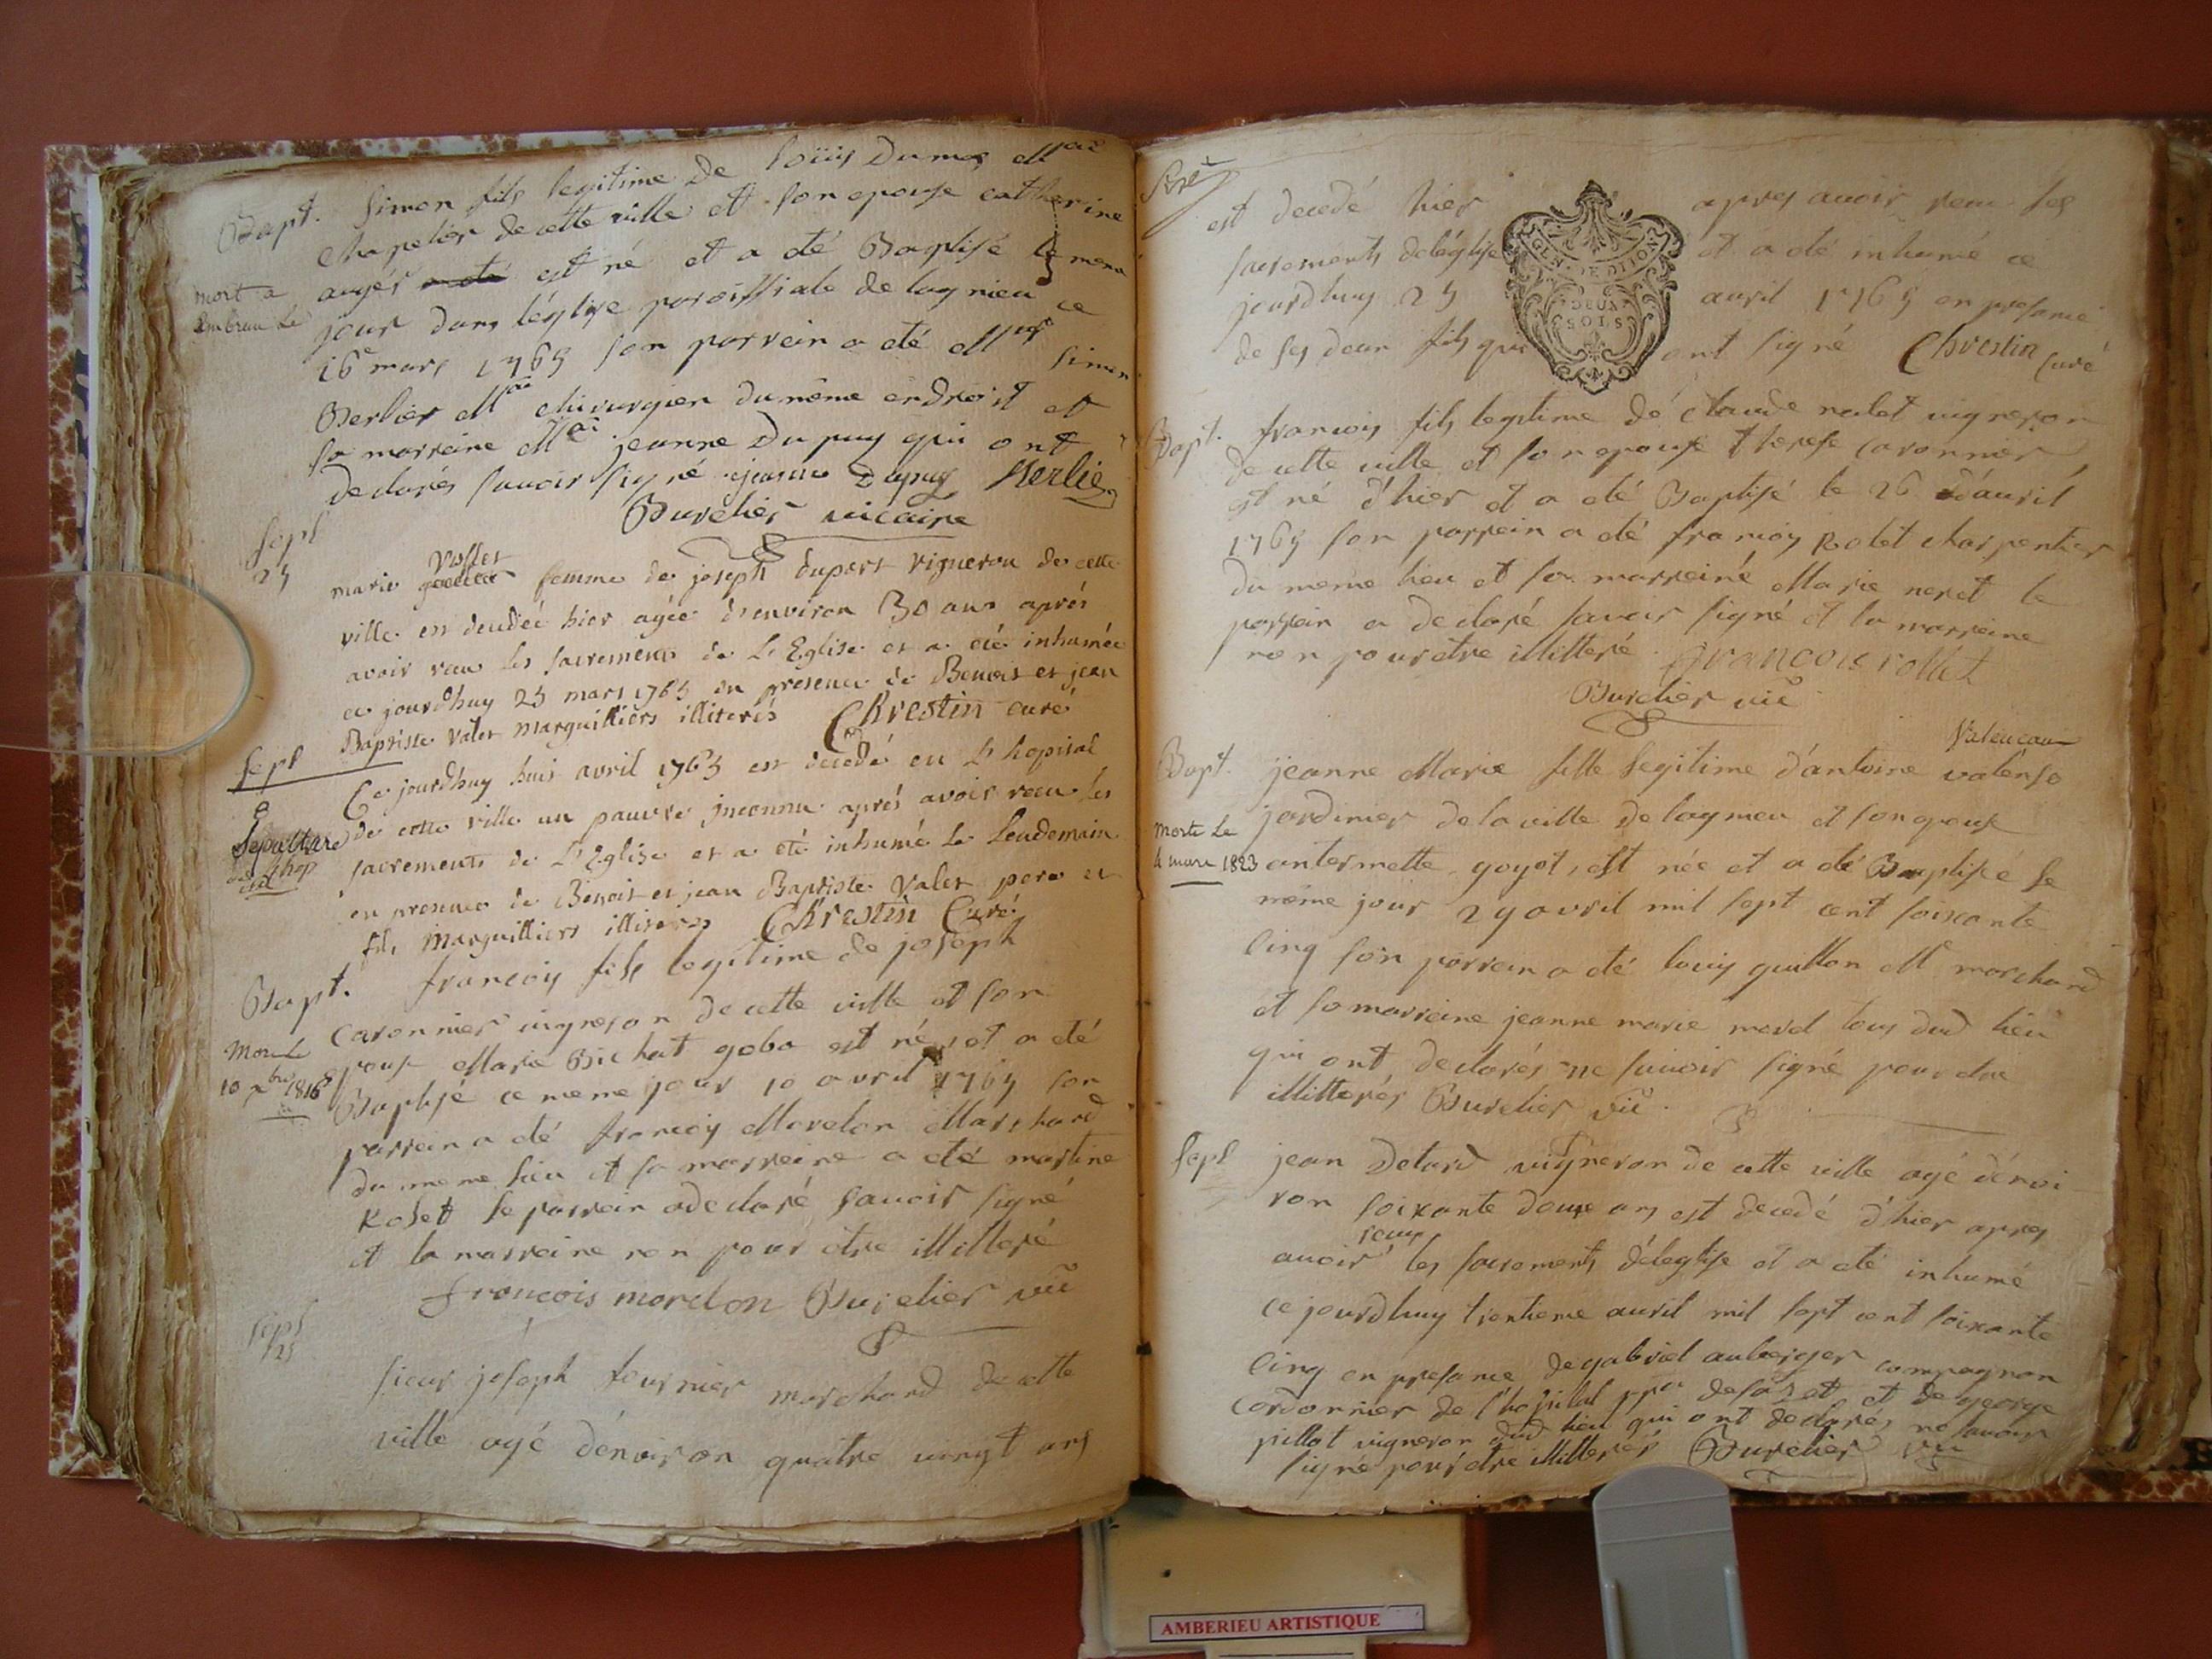 Bapt. Simon fils legitime de Loüis Dumas Mtre
Chapelier de cette ville et son epouse catherine
augér est né et a été Baptisé le meme
mort a
Embrun le
jour dans l'église paroissiale de lagnieu ce
16e mars 1765 son parrein a été Simon
Berlier chirurgien du même endroit et
sa marreine jeanne Dupuy qui ont
declarés savoir signé jeanne Dupuy Berlie
Burelier vicaire
Sepl
25
Vallet
marie femme de joseph dupors vigneron de cette
ville est decedeé hier agée d'environ 30 ans aprés
avoir recu les sacrements de L'Eglise et a été inhumée
ce jourdhuy 25 mars 1765 en presence de Benoit et jean
Baptiste Valet marguilliers illiterés Chrestin curé
Sepl
8
Ce jourdhuy huit avril 1765 est decedé en L'hopital
Sepulture
de cette ville un pauvre jnconnu aprés avoir recu les
sacrements de L'Eglise et a été inhumé Le Lendemain
en presence de Benoit et jean Baptiste Valet pere et
fils Marguilliers illiteres Chrestin Curé
Bapt. francois fils legitime de joseph
Caronnier vigneron de cette ville et son
Mort Le
10 xbre 1816
epouse Marie Bichat gobo est né et a été
Baptisé ce meme jour 10 avril 1765 son
parrein a été francoy Morelon Marchand
du meme lieu et sa marreine a été martine
Rolet le parrein a declaré savoir signé
et la marreine non pour être illitteré
francois morelon Burelier vic
Sepl
25
Sieur joseph fournier marchand de cette
ville agé dénviron quatre vingt ans
est decedé hier apres avoir recu les
sacrements deléglise et a été inhumé ce
jourdhuy 25 avril 1765 en presance
de ses deux fils qui ont signé Chrestin curé
GEN. DE DIJON
DEUX
SOLS
Bapt. francois fils legitime dé Claude nalet vigneron
de cette ville et son epouse therese caronnier
est né d'hier et a été Baptisé le 26 d'auril
1765 son parrein a été francoy Rolet charpentier
du meme lieu et sa marreiné Marie neret le
parrein a declaré savoir signé et la marreine
non pour etre illitteré francois rollet
Burelier vic
Valencau
Bapt. jeanne Marie fille legitime d'antoine valenso
jardinier de la ville de lagnieu et son epouse
Morte Le
4 mars 1823
antermette goyot, est née et a été Baptisée le
même jour 29 avril mil sept cent soixante
cinq son parrein a été louis guillon Mtre marchand
et sa marreine jeanne marie morel tous dud lieu
qui ont declarés ne savoir signé pour etre
illitterés Burelier vic
Sepl
jean Detard vigneron de cette ville agé dénvi-
ron soixante douze ans est decedé d'hier apres
recu
avoir les sacrements déleglise et a été inhumé
ce jourdhuy trentieme auril mil sept cent soixante
cinq en presance de gabriel auberger compagnon
cordonnier de l'hopital et de george
pillot vigneron dud lieu qui ont declarés ne savoir
signé pour etre illitterés Burelier vic
AMBERIEU ARTISTIQUE